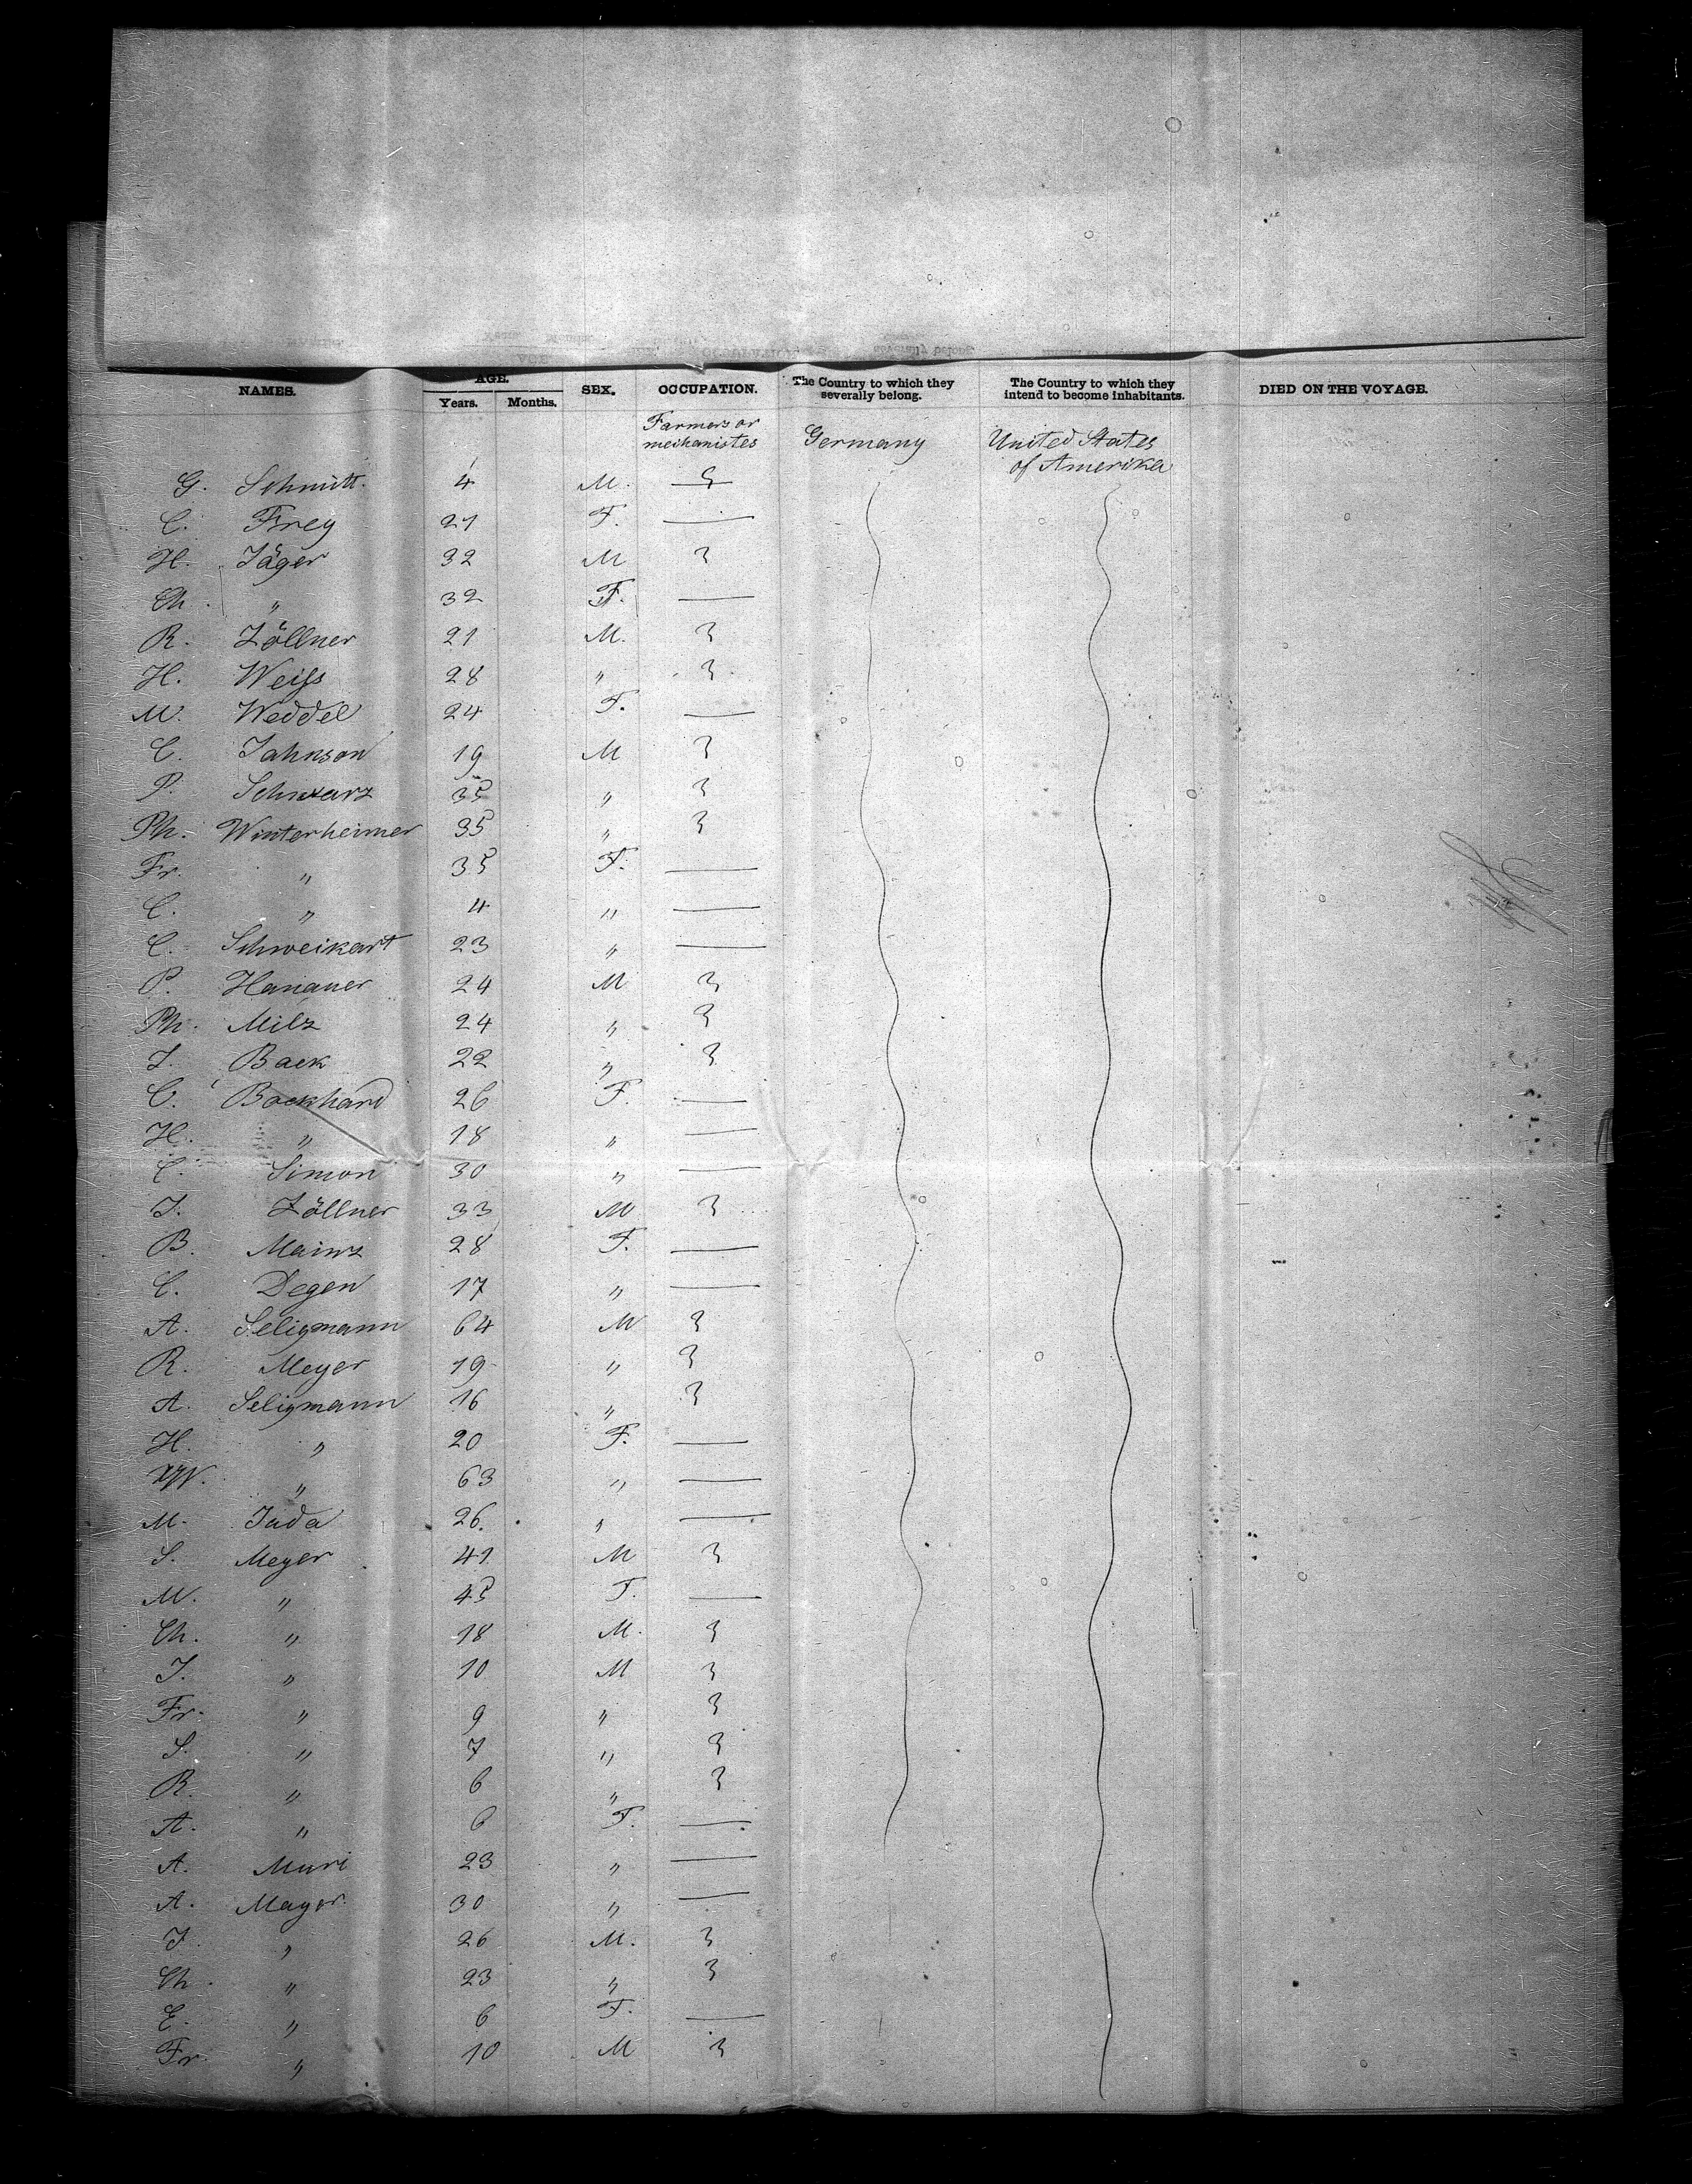 NAMES. AGE. SEX. OCCUPATION. The Country to which they severally belong. The Country to which they intend to become inhabitants. DIED ON THE VOYAGE.
Years. Months.
Farmers or mechanistes Germany United States of Amerika
G. Schmitt. 4 M.
C. Frey 21 F. —
H. Jäger 32 M
Ch. " 32 F. —
R. Zöllner 21 M.
H. Weiss 28 "
M. Weddel 24 F. —
C. Jahnson 19 M
P. Schwarz 35 "
Ph. Winterheimer 35 "
Fr. " 35 F. —
C. " 4 " —
C. Schweikart 23 " —
P. Hanauer 24 M
Ph. Milz 24 "
J. Back 22 "
C. Backhard 26 F. —
H. " 18 " —
C. Simon 30 " —
J. Zöllner 33 M
B. Mainz 28 F. —
C. Degen 17 " —
A. Seligmann 64 M
R. Meyer 19 "
A. Seligmann 16 "
H. " 20 F. —
W. " 63 " —
M. Jada 26. " —
S. Meyer 41 M
M. " 45 F. —
Ch. " 18 M.
J. " 10 M
Fr. " 9 "
S. " 7 "
R. " 6 "
A. " 6 F. —
A. Muri 23 " —
A. Mayer. 30 " —
J. " 26 M.
Ch. " 23 "
E. " 6 F. —
Fr. " 10 M